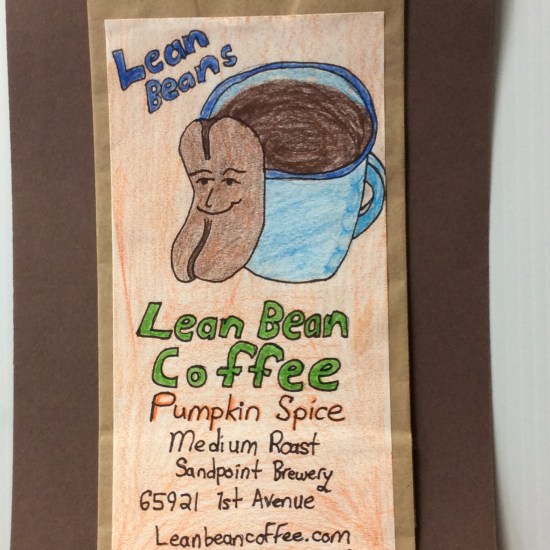 Lean
Beans
Lean Bean
Coffee
Pumpkin Spice
Medium Roast
Sandpoint Brewery
65921 1st Avenue
Leanbeancoffee.com